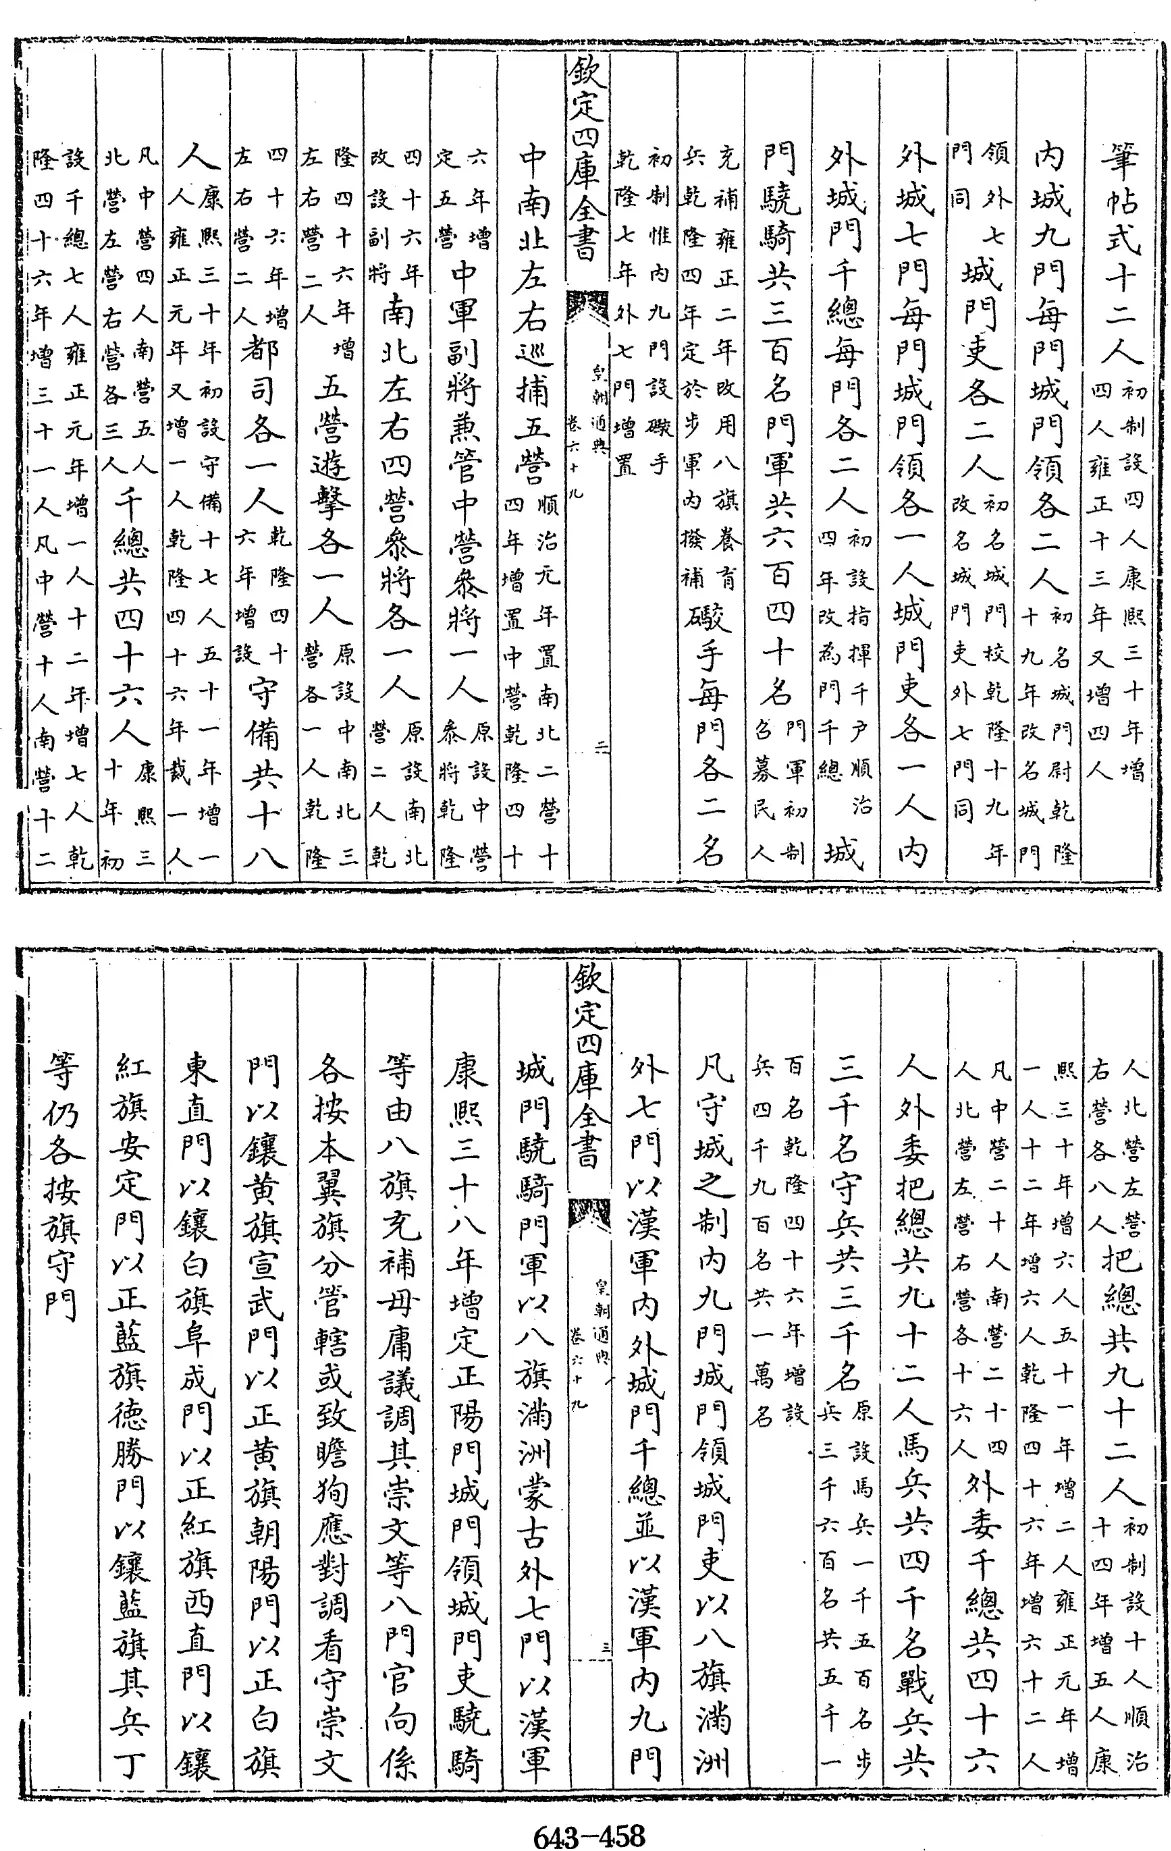 筆帖式十二人初制設四人康熙三十年增四人雍正十三年又增四人
內城九門每門城門領各二人初名城門尉乾隆十九年改名城門
領外七門同城門吏各二人初名城門校乾隆十九年改名城門吏外七門同
外城七門每門城門領各一人城門吏各一人內
外城門千總每門各二人初設指揮千戶順治四年改為門千總城
門驍騎共三百名門軍共六百四十名門軍初制召募民人
充補雍正二年改用八旗養育兵乾隆四年定於步軍內撥補礮手每門各二名
初制惟內九門設礮手乾隆七年外七門增置
欽定四庫全書 皇朝通典 卷六十九 二
中南北左右巡捕五營順治元年置南北二營十四年增置中營乾隆四十
六年增定五營中軍副將兼管中營叅將一人原設中營叅將乾隆
四十六年改設副將南北左右四營叅將各一人原設南北營二人乾
隆四十六年增左右營二人五營遊擊各一人原設中南北三營各一人乾隆
四十六年增左右營二人都司各一人乾隆四十六年增設守備共十八
人康熙三十年初設守備十七人五十一年增一人雍正元年又增一人乾隆四十六年裁一人
凡中營四人南營五人北營左營右營各三人千總共四十六人康熙三十年初
設千總七人雍正元年增一人十二年增七人乾隆四十六年增三十一人凡中營十人南營十二
人北營左營右營各八人把總共九十二人初制設十人順治十四年增五人康
熙三十年增六人五十一年增二人雍正元年增一人十二年增六人乾隆四十六年增六十二人
凡中營二十人南營二十四人北營左營右營各十六人外委千總共四十六
人外委把總共九十二人馬兵共四千名戰兵共
三千名守兵共三千名原設馬兵一千五百名步兵三千六百名共五千一
百名乾隆四十六年增設兵四千九百名共一萬名
凡守城之制內九門城門領城門吏以八旗滿洲
外七門以漢軍內外城門千總並以漢軍內九門
欽定四庫全書 皇朝通典 卷六十九 三
城門驍騎門軍以八旗滿洲蒙古外七門以漢軍
康熙三十八年增定正陽門城門領城門吏驍騎
等由八旗充補毋庸議調其崇文等八門官向係
各按本翼旗分管轄或致瞻狥應對調看守崇文
門以鑲黃旗宣武門以正黃旗朝陽門以正白旗
東直門以鑲白旗阜成門以正紅旗西直門以鑲
紅旗安定門以正藍旗德勝門以鑲藍旗其兵丁
等仍各按旗守門
643-458